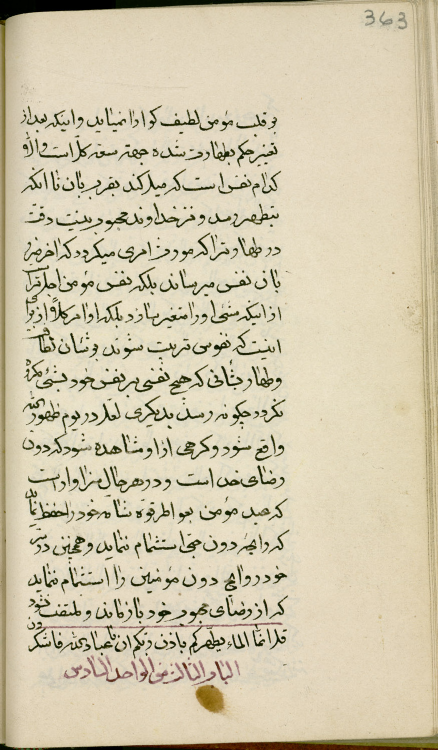 363
بر قلب مؤمن لطیف گوارا نمیاید و اینکه بعد از
تغییر حکم بطهارت شده جهة سعه کل است والا
کدام نفس است که میل کند بقرب بآن تا آنکه
تطهیر دهد و نزد خداوند محبوب نیست دقت
در طهارت را که مورث امری میگردد که آخر ضرر
بآن نفس میرساند بلکه نفس مؤمن اجل تر است
از اینکه شیئ او را متغیر سازد بلکه اوامر کلا از برای
اینست که نفوس تربیت شوند بر شأن لطافت
و طهارت شأنی که هیچ نفسی بر نفس خود بشیئ مکره
نگردد چگونه رسد بدیگری لعل در یوم ظهور الله
واقع شود و کرهی از او مشاهده نشود که دون
رضای خدا است و در هر حال سزاوار است
که عبد مؤمن بما هو المرقوه شامه خود را حفظ نماید
که رایحه دون حبی استشمام ننماید و همچنین در سر
خود روایح دون مؤمنین را استشمام ننماید
که از رضای محبوب خود باز ماند و ملتفت نشود
قل انما الماء یطهرکم باذن ربکم ان یا عباد الله فاشکرون
الباب الثالث من الواحد السادس